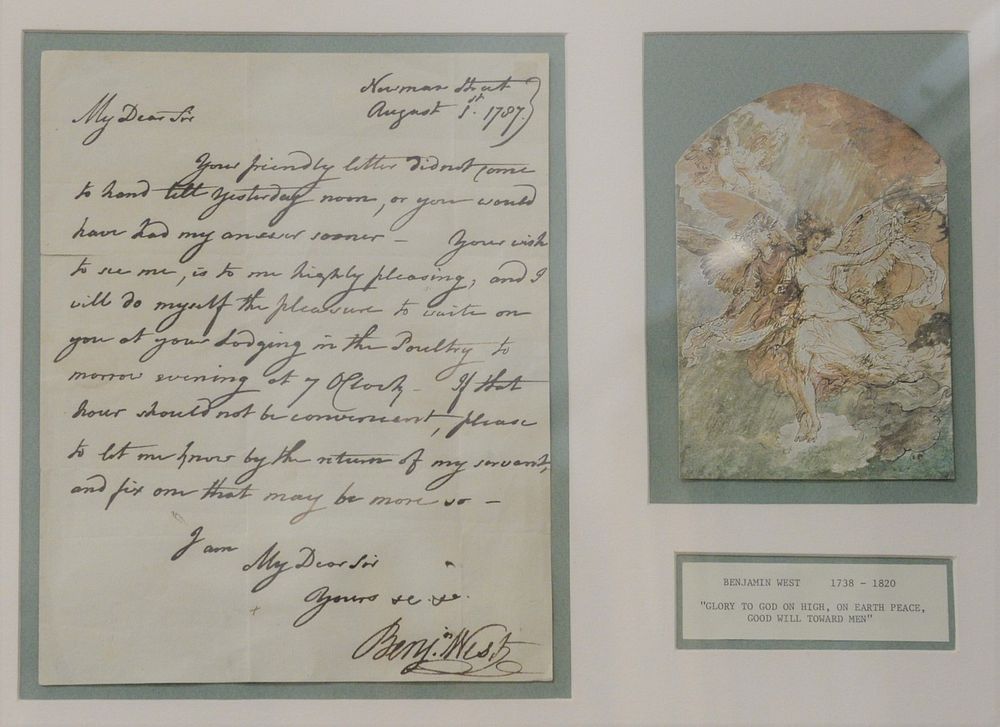 Newman Street
August 1st. 1787.
My Dear Sir
Your friendly letter did not come
to hand till Yesterday noon, or you would
have had my answer sooner — Your wish
to see me, is to me highly pleasing, and I
will do myself the pleasure to waite on
you at your Lodging in the Poultry to
morrow evening at 7 OClock — If that
hour should not be convenient, please
to let me know by the return of my servant,
and fix one that may be more so —
I am
My Dear Sir
Yours &c &c.
Benjn. West
BENJAMIN WEST 1738 - 1820
"GLORY TO GOD ON HIGH, ON EARTH PEACE,
GOOD WILL TOWARD MEN"